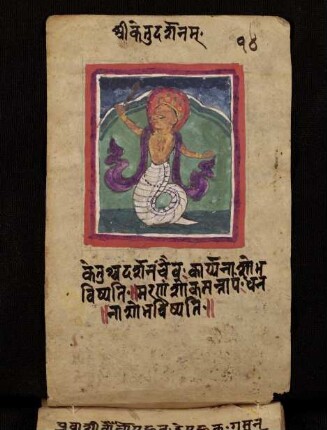 श्रीकेतुदर्शनम्·
१४
केतुश्चदर्शनंचैव· कार्य्यनाशोभ
विष्यति·॥मरणं शोकसन्तापः धन
॥नाशोभविष्यति·॥